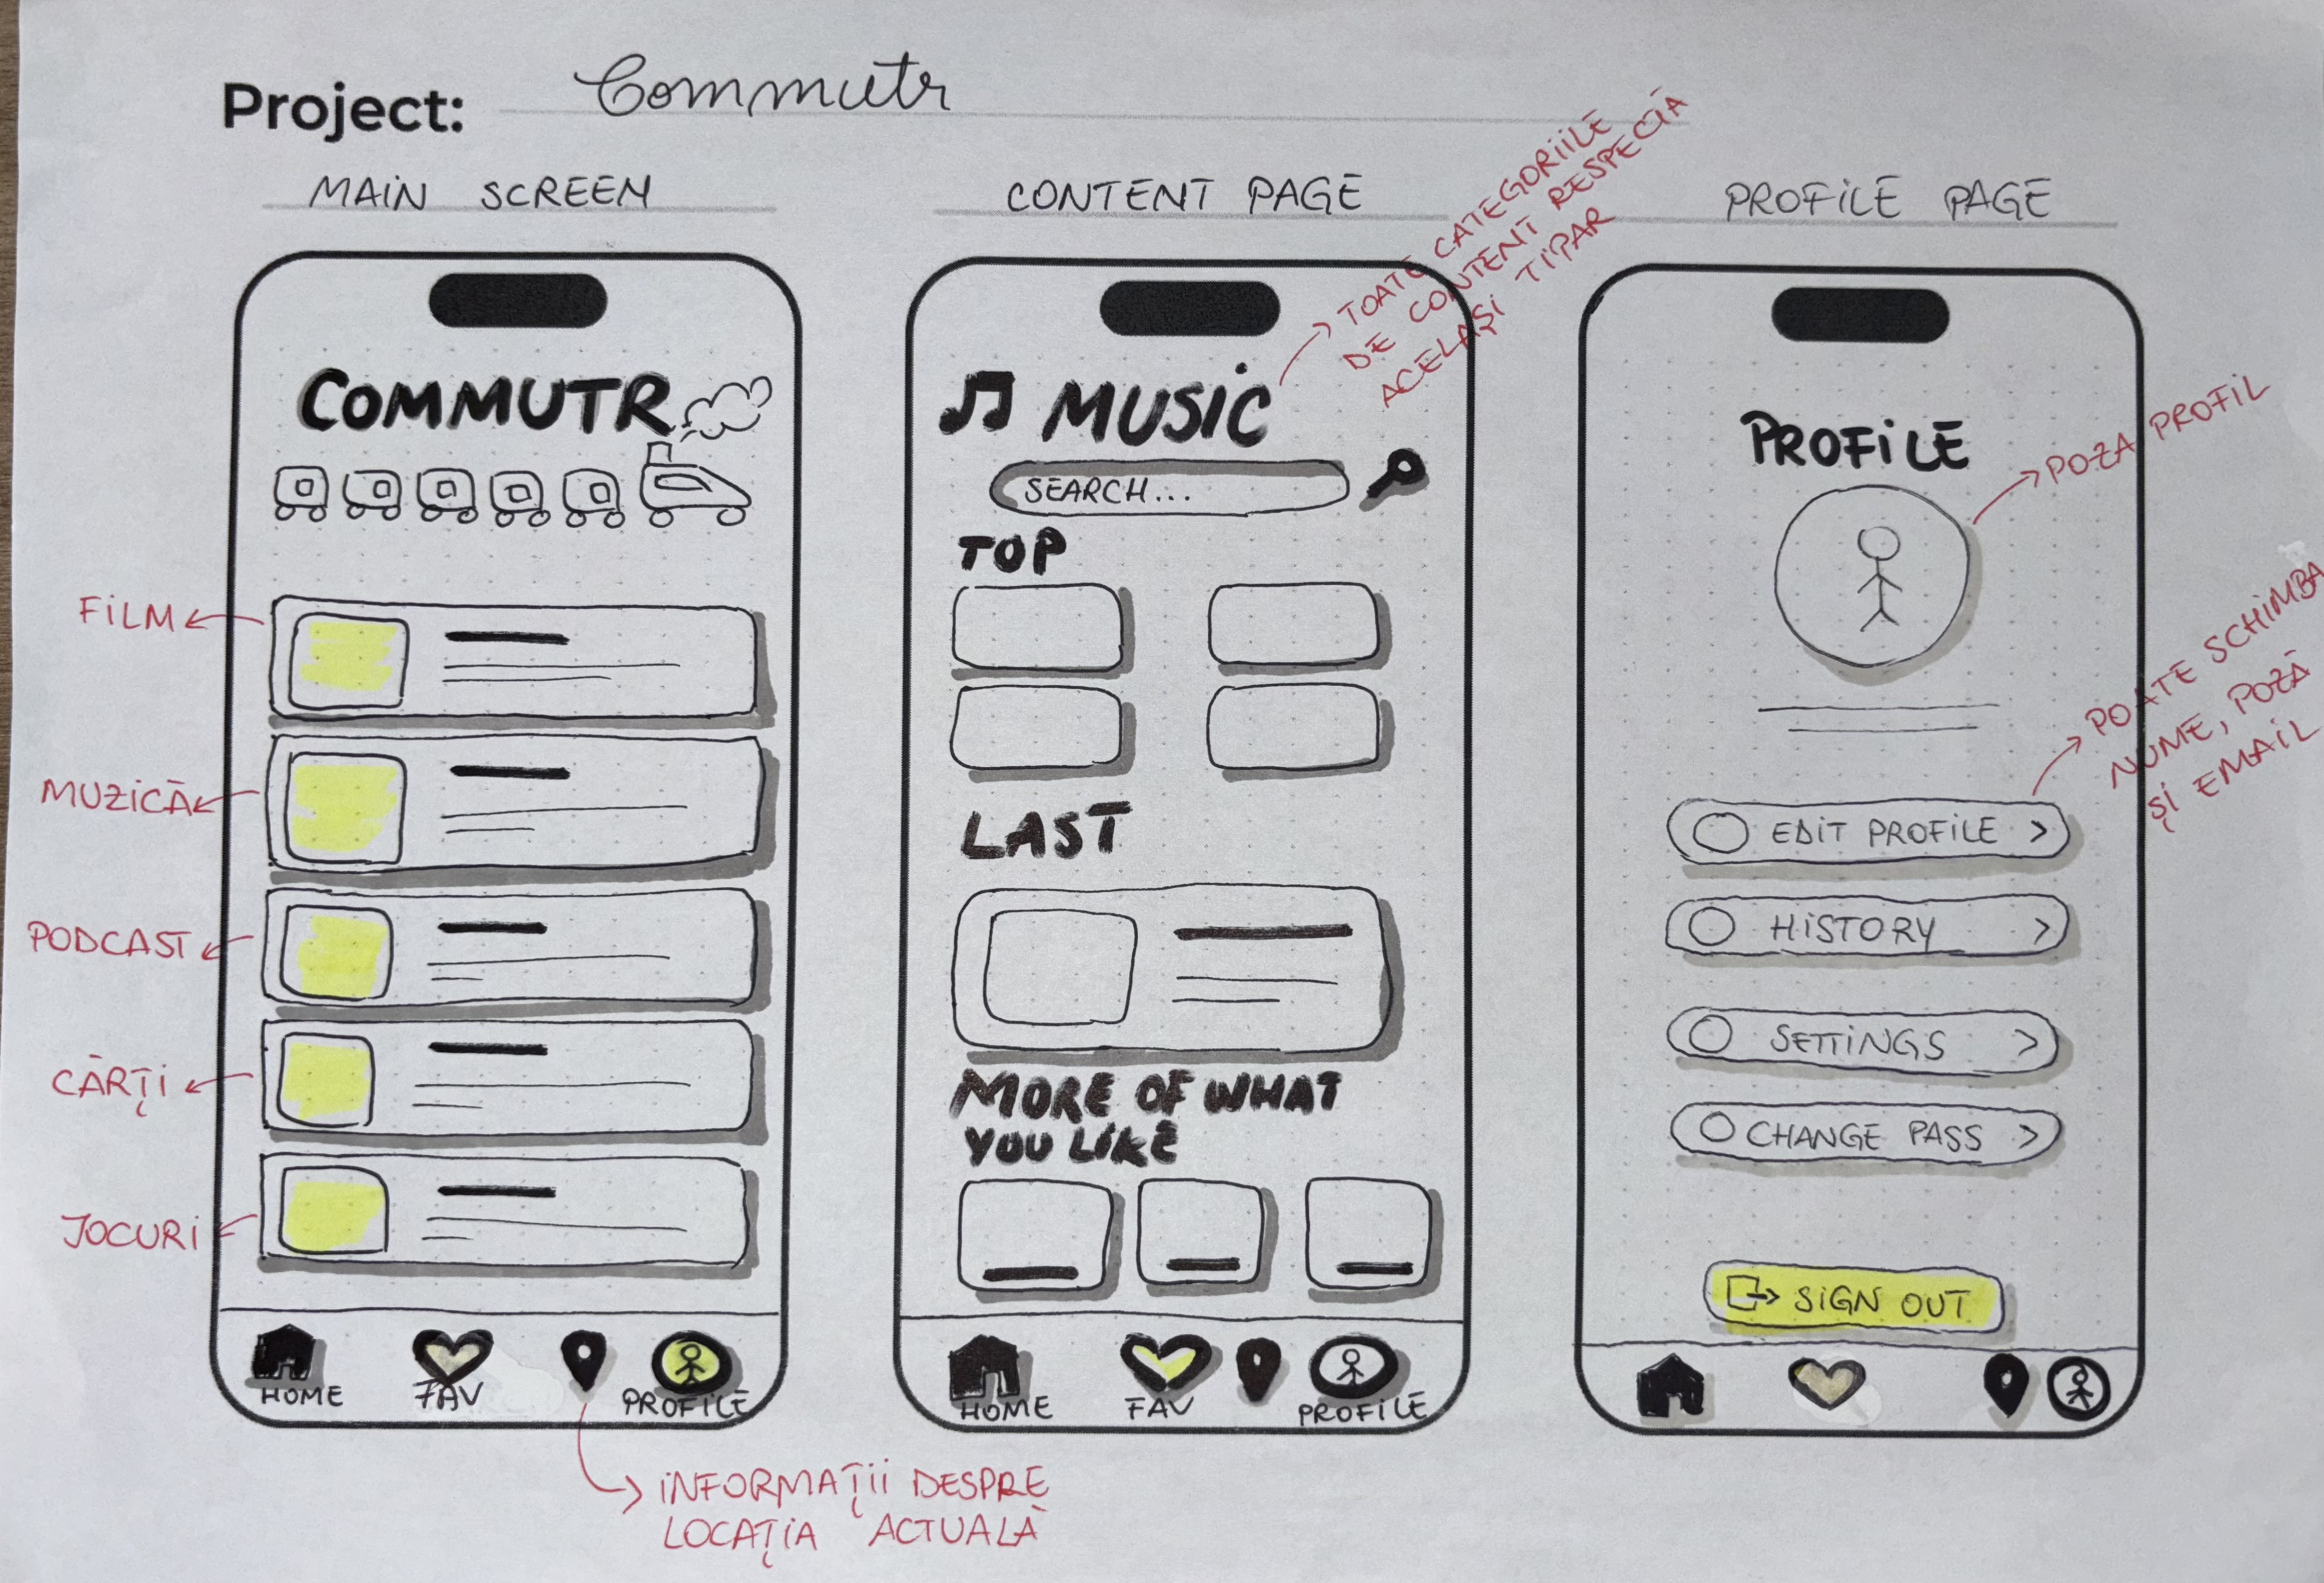 Project: Commutr
MAIN SCREEN
CONTENT PAGE
PROFILE PAGE
COMMUTR
FILM
MUZICĂ
PODCAST
CĂRȚI
JOCURI
HOME
FAV
PROFILE
INFORMAȚII DESPRE
LOCAȚIA ACTUALĂ
TOATE CATEGORIILE
DE CONTENT RESPECTĂ
ACELAȘI TIPAR
MUSIC
SEARCH...
TOP
LAST
MORE OF WHAT
YOU LIKE
HOME
FAV
PROFILE
PROFILE
POZA PROFIL
POATE SCHIMBA
NUME, POZĂ
ȘI EMAIL
EDIT PROFILE >
HISTORY >
SETTINGS >
CHANGE PASS >
SIGN OUT